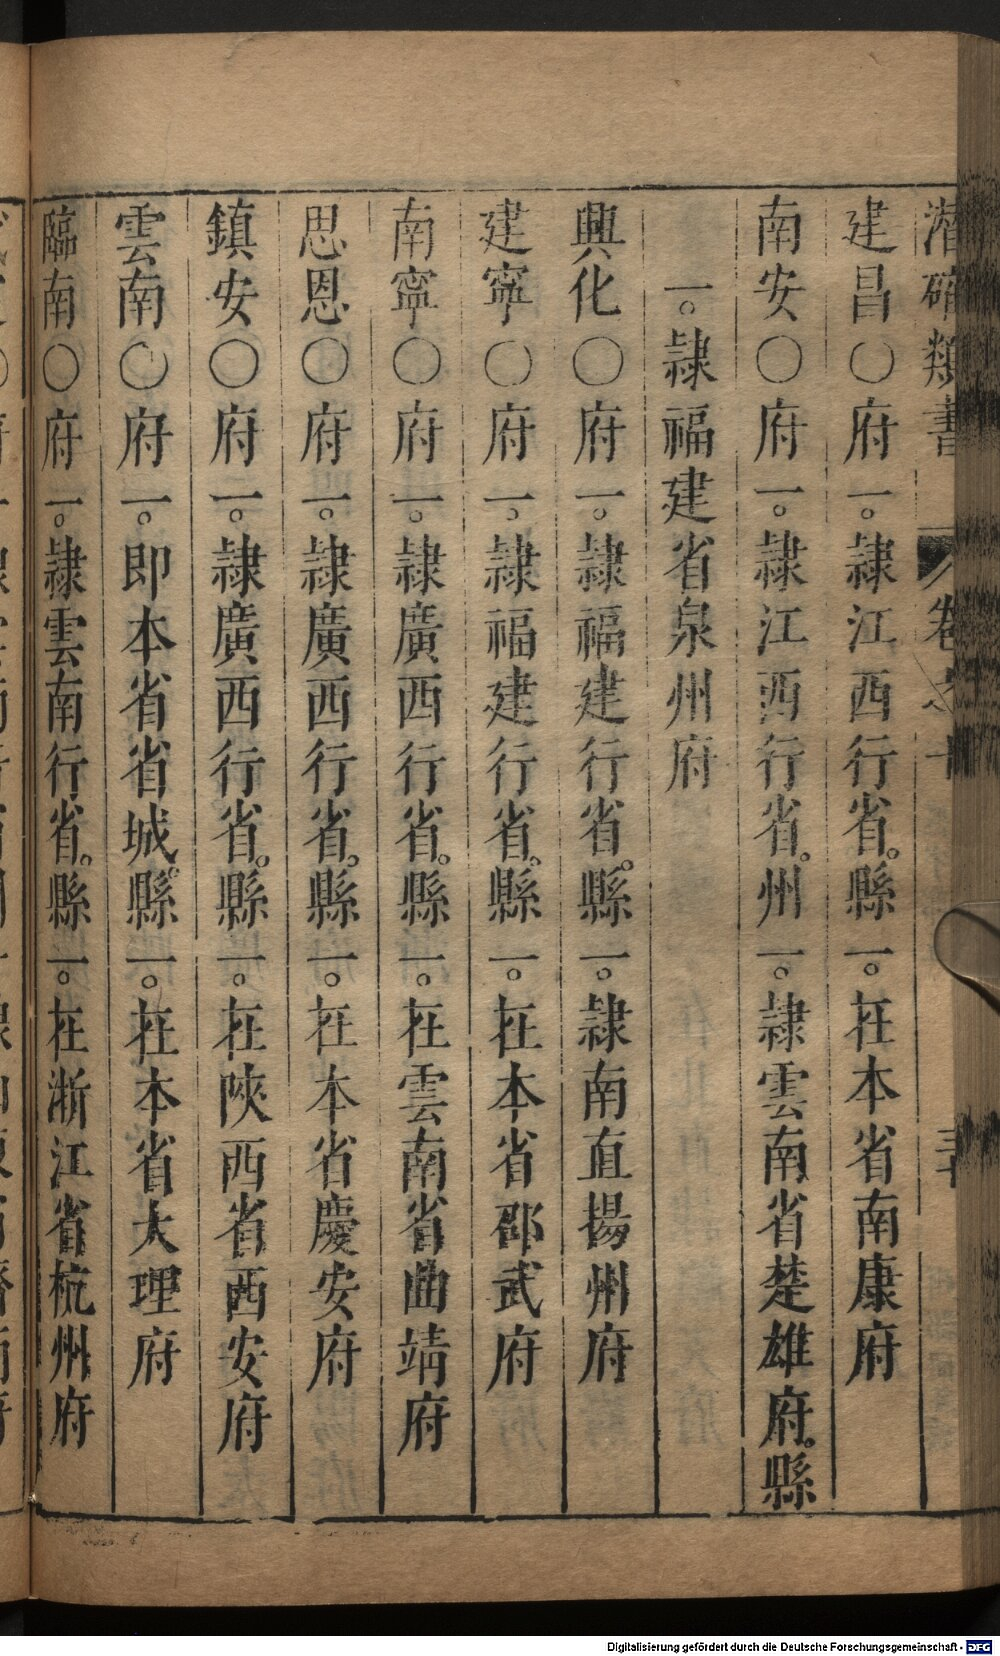 潛確類書 卷之十 三十
建昌〇府一。隷江西行省。縣一。在本省南康府
南安〇府一。隷江西行省。州一。隷雲南省楚雄府。縣
一。隷福建省泉州府
興化〇府一。隷福建行省。縣一。隷南直揚州府
建寧〇府一。隷福建行省。縣一。在本省邵武府
南寧〇府一。隷廣西行省。縣一。在雲南省曲靖府
思恩〇府一。隷廣西行省。縣一。在本省慶安府
鎮安〇府一。隷廣西行省。縣一。在陝西省西安府
雲南〇府一。即本省省城。縣一。在本省大理府
臨南〇府一。隷雲南行省。縣一。在浙江省杭州府
Digitalisierung gefördert durch die Deutsche Forschungsgemeinschaft - DFG